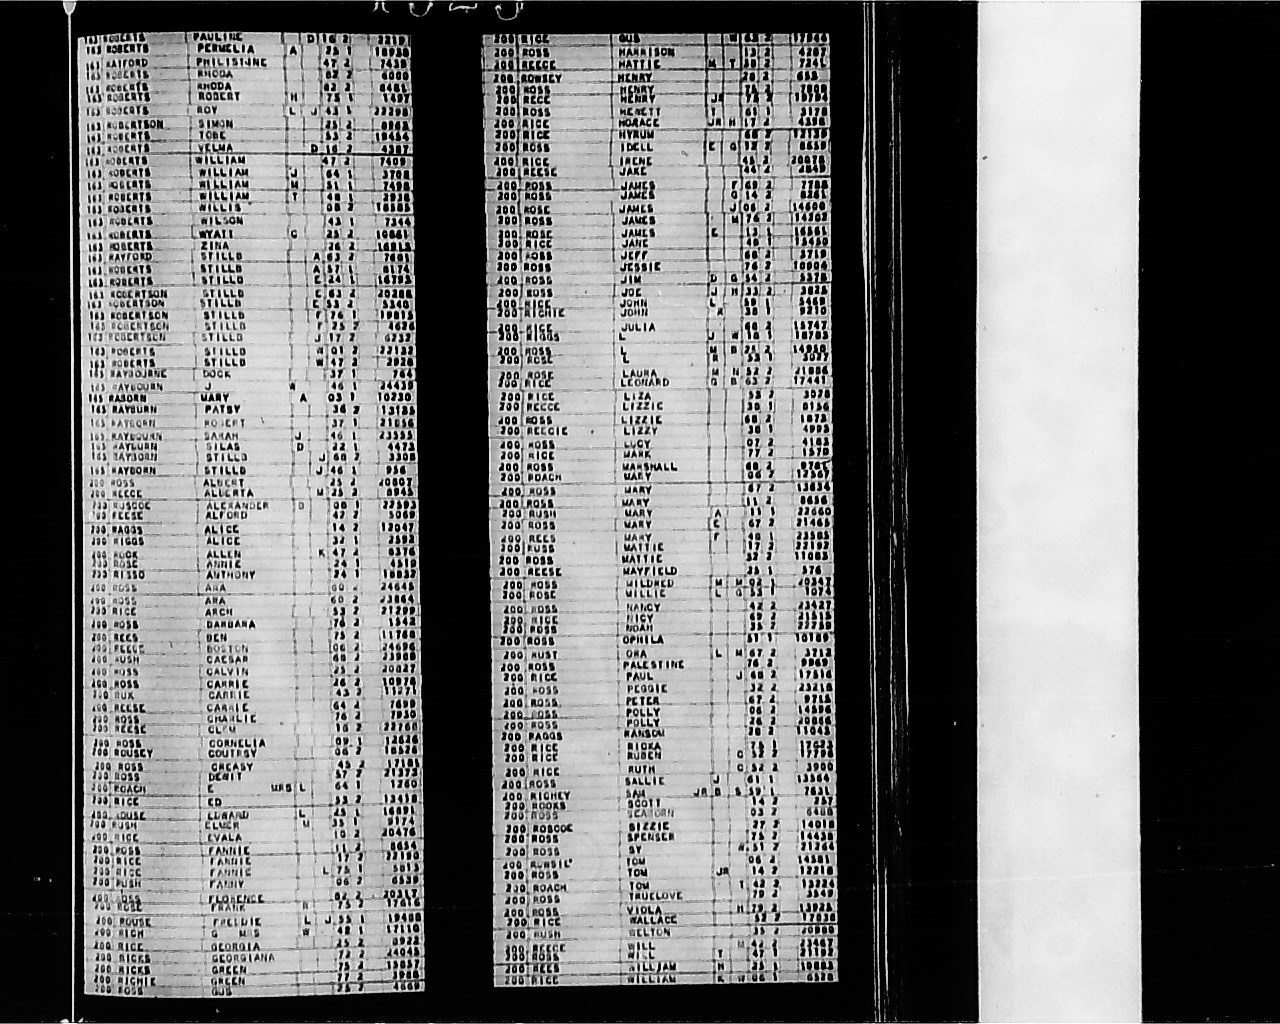 163 ROBERTS PAULINE D 16 2 2219
163 ROBERTS PERMELIA A 25 1 18930
163 RAIFORD PHILISTINE 47 2 7439
163 ROBERTS RHODA 82 2 6000
163 ROBERTS RHODA 82 2
163 ROBERTS ROBERT H 75 1 1497
163 ROBERTS ROY L J 43 1 22298
163 ROBERTSON SIMON 25 2
163 ROBERTS TOBE 53 2 19454
163 ROBERTS VELMA D 16 2 4387
163 ROBERTS WILLIAM 47 2 7409
163 ROBERTS WILLIAM J 64 1 3708
163 ROBERTS WILLIAM M 51 1 7498
163 ROBERTS WILLIAM T 48 1 2939
163 ROBERTS WILLIS 08 2
163 ROBERTS WILSON 43 1 7344
163 ROBERTS WYATT C 25 2 10861
163 ROBERTS ZINA 26 2
163 RAYFORD STILLB A 63 2 7601
163 ROBERTS STILLB A 57 1 8174
163 ROBERTS STILLB E 24 1 16793
163 ROBERTSON STILLB E 63 2 20288
163 ROBERTSON STILLB E 53 2 5340
163 ROBERTSON STILLB F 76 1 19815
163 ROBERTSON STILLB F 25 2 4626
163 ROBERTSON STILLB J 17 2 6232
163 ROBERTS STILLB W 01 2 22132
163 ROBERTS STILLB W 47 2 2928
165 RAYBOURNE DOCK 37 1 764
165 RAYBOURN J W 46 1 24439
165 RABORN MARY A 03 1 10230
165 RAYBURN PATSY 36 2 13135
165 RAYBURN ROBERT 37 1 21656
165 RAYBOURN SARAH J 46 1 23553
165 RAYBURN SILAS D 22 1 4473
165 RAYBORN STILLB J 68 2 3308
165 RAYBORN STILLB J 46 1 956
200 ROSS ALBERT 25 2 20807
200 REECE ALBERTA M 25 2 8945
200 RUSCOE ALEXANDER D 08 1 22593
200 REESE ALFORD 42 2 5069
200 RAGGS ALICE 14 2 12047
200 RIGGS ALICE 32 1 2592
200 ROCK ALLEN K 47 2 8376
200 ROSE ANNIE 24 1 4519
200 RISSO ANTHONY 24 1 18832
200 ROSS ARA 60 2 24645
200 ROSS ARA 60 2 23864
200 RICE ARCH 53 2 21299
200 ROSS BARBARA 76 2 1542
200 REES BEN 75 2 11768
200 REECE BOSTON 06 2 24696
200 RUSH CAESAR 68 2 23988
200 ROSS CALVIN 25 2 20827
200 ROSS CARRIE 26 2 10978
200 RUX CARRIE 43 2 11271
200 REESE CARRIE 64 2 7699
200 ROSS CHARLIE 76 2 7930
200 REESE CLEM 16 2 22760
200 ROSS CORNELIA 09 12626
200 ROUSEY COUTRSY 06 2 18526
200 ROSS CREASY 45 2 17181
200 ROSS DEWIT 57 2 21373
200 ROACH E MRS L 64 1 1260
200 RICE ED 53 2 13418
200 ROUSE EDWARD L 25 1 16891
200 RUSH ELMER M 35 1 9174
200 RICE EVALA 10 2 20476
200 ROSS FANNIE 11 2 8654
200 RICE FANNIE 17 2 22190
200 RICE FANNIE L 75 1 5013
200 RUSH FANNY 06 2 6539
200 ROSS FLORENCE 82 2 20517
200 ROSE FRANK R 75 2 17616
200 ROUSE FREDDIE L J 55 1 19488
200 RICH G MRS W 48 1 17110
200 RICE GEORGIA 25 2 8922
200 RICKS GEORGIANA 72 2 24045
200 RICKS GREEN 75 2
200 RICHIE GREEN 77 2 3988
200 ROSS GUS 25 2 4669
200 RICE GUS W
200 ROSS HARRISON 13 2 4207
200 REECE HATTIE M T 38 2 7241
200 ROWSEY HENRY 28 2 653
200 ROSS HENRY 75 2
200 RECE HENRY JR 73 2 19794
200 ROSS HEWETT T 61 1 3178
200 RICE HORACE JR H 17 2 4398
200 RICE HYRUM 68 2 12139
200 ROSS IDELL E G 12 2 8639
200 RICE IRENE 45 2 20878
200 REESE JAKE 44 2 2849
200 ROSS JAMES F 69 2 7788
200 ROSS JAMES G 14 2 8261
200 ROSE JAMES J 06 2 14600
200 ROSS JAMES M 76 2 14202
200 ROSE JAMES E 13 1 16561
200 RICE JANE 48 1 13450
200 ROSS JEFF 68 2 3719
200 ROSS JESSIE 76 2 10904
200 ROSS JIM D G 54 2 5378
200 ROSS JOE J H 33 2 3825
200 RICE JOHN L 59 1 5469
200 RICHIE JOHN R 38 1 9210
200 RICE JULIA 68 2 15747
200 RIGGS L J W 18 1 18783
200 ROSS L M B 25 2 14958
200 ROSE L R 53 1 3037
200 ROSE LAURA M N 52 2 21886
200 RICE LEONARD G B 63 2 17441
200 RICE LIZA 53 2 3078
200 REECE LIZZIE 38 1 8156
200 ROSS LIZZIE 68 2 1673
200 REECIE LIZZY 38 1 4995
200 ROSS LUCY 07 2 4183
200 RICE MARK 77 2 1570
200 ROSS MARSHALL 68 2
200 ROACH MARY 06 2 12557
200 ROSS MARY 67 2 13634
200 ROSS MARY 11 2 8656
200 RUSH MARY A 11 1 22660
200 ROSS MARY E 67 2 21465
200 REES MARY F 48 1 23585
200 RUSS MATTIE 17 2 22192
200 ROSS MATTIE 32 2 11083
200 REESE MAYFIELD 25 1 576
200 ROSS MILDRED M M 02 1 20347
200 ROSE MILLIE L G 53 1 1074
200 ROSS NANCY 42 2 23427
200 RICE NICY 69 2 21515
200 ROSS NOAH 35 2
200 ROSS OPHILA 51 1 10189
200 RUST ORA L M 67 2 3712
200 ROSS PALESTINE 76 2 9969
200 RICE PAUL J 68 2 17516
200 ROSS PEGGIE 32 2 23218
200 ROSS PETER 67 2 9715
200 ROSS POLLY 06 2 14596
200 ROSS POLLY 26 2 20866
200 RAGGS RANSOM 28 2 11045
200 RICE RICKA 75 1 17623
200 RICE RUBEN G 52 2 17798
200 RICE RUTH C 52 2 3900
200 ROSS SALLIE J 61 1 13564
200 RICHEY SAM JR B S 59 1 7831
200 ROOKS SCOTT 14 2 257
200 ROSS SEABORN 03 2 6488
200 ROSCOE SIZZIE 77 2 14018
200 ROSS SPENSER 75 2 14438
200 ROSS SY R 51 2 21266
200 TOM 06 2 14581
200 ROSS TOM JR 14 2 12218
200 ROACH TOM T 42 2 13224
200 ROSS TRUELOVE 79 2 3549
200 ROSS VIOLA H 79 2 13925
200 RICE WALLACE 52 2 17838
200 RUSH WELTON 35 2 20980
200 REECE WILL M 42 2 23467
200 ROSS WILL T 47 1 21192
200 REES WILLIAM H 25 1
200 RICE WILLIAM K W 06 1 6526